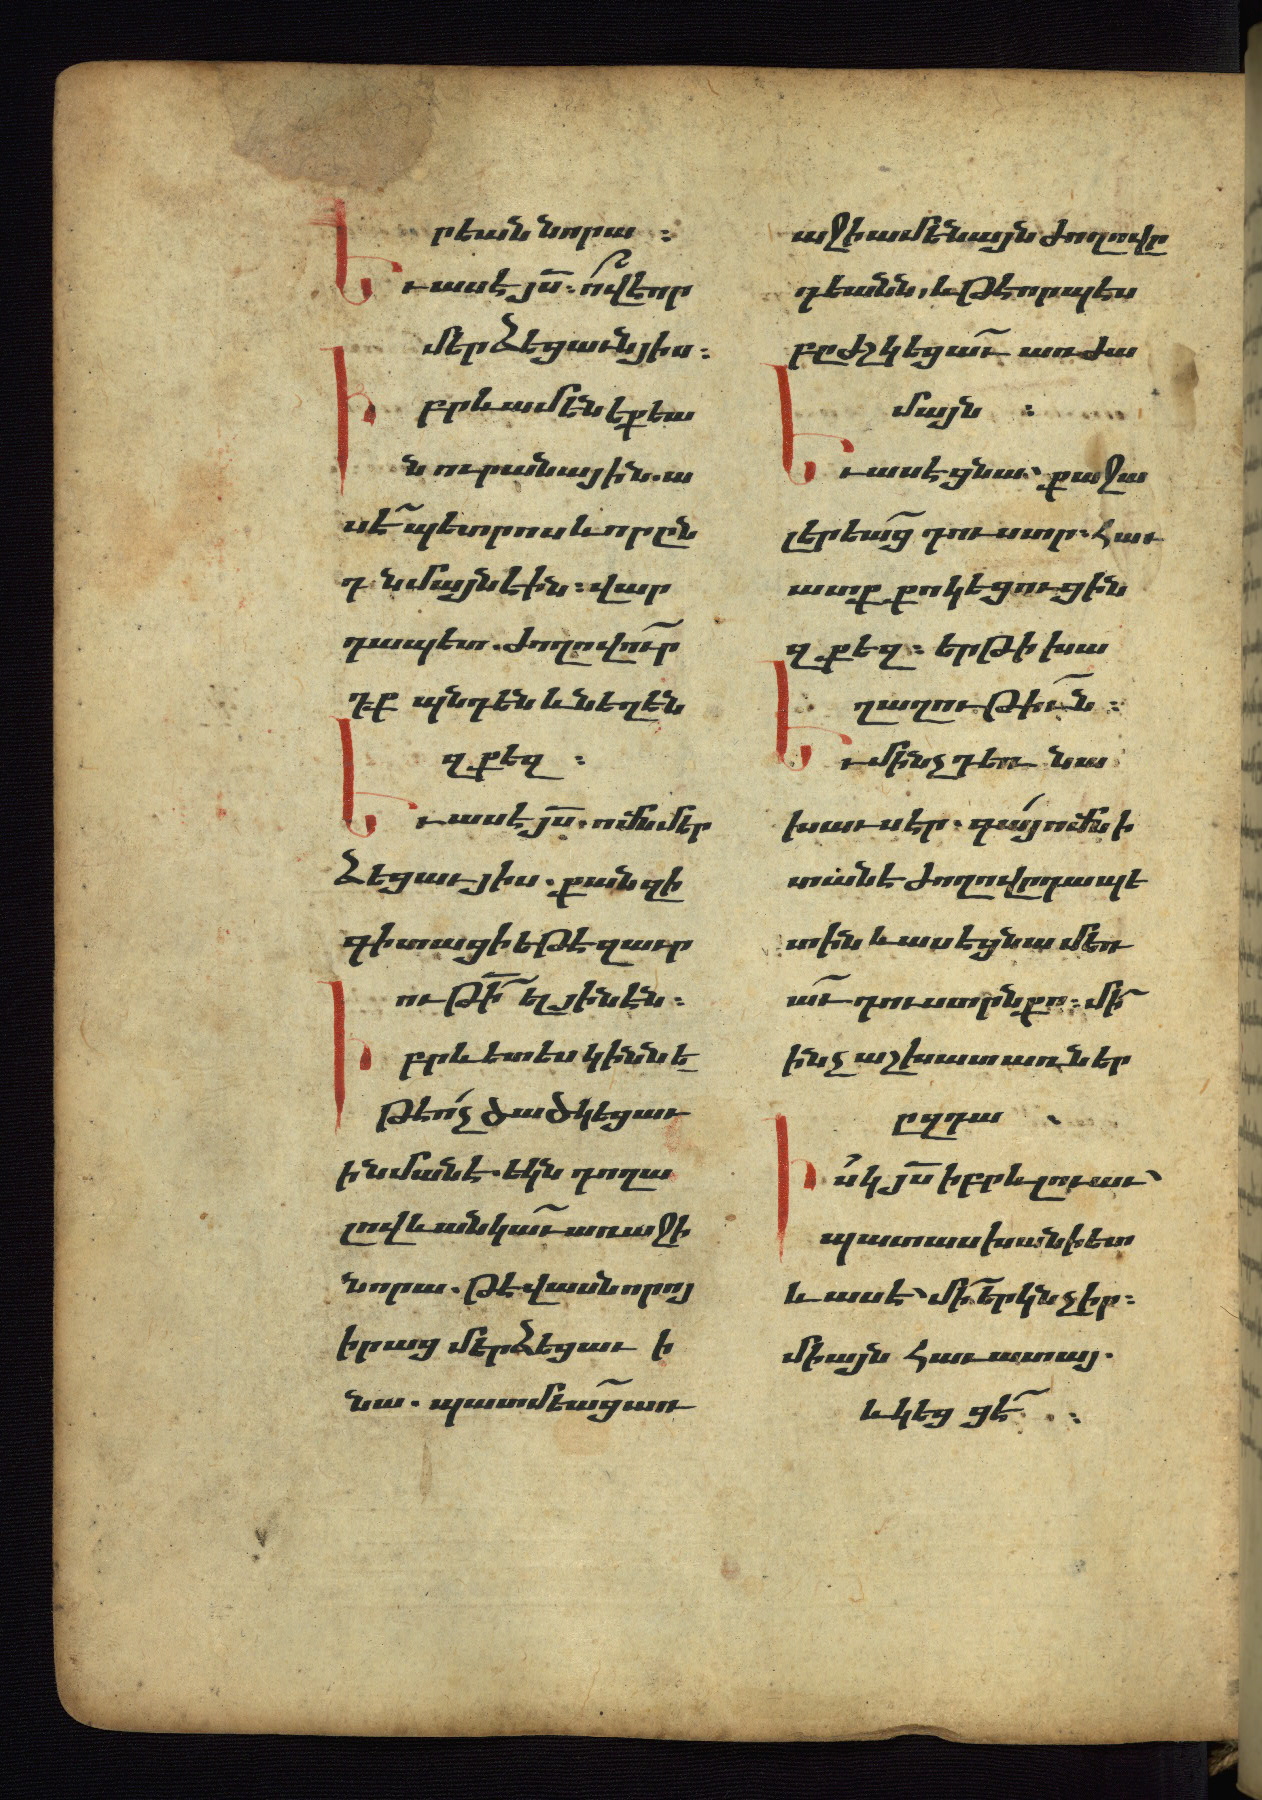 րեան նորա ։
Եւ ասէ յս̅ . ո՞վ է որ
մերձեցաւն յիս ։
Իբրև ամէնեքեա
ն ուրանային . ա
սէ̃ պետրոս և որ ընդ
դ նմայն էին ։ վար
դապետ . ժողովուր̃
դք պնդեն և նեղեն
զքեզ ։
Եւ ասէ յս̅ . ոմն մեր
ձեցաւ յիս . քանզի
գիտացի եթէ զաւր
ութի̃ ել յինէն ։
Իբրև ետես կինն ե
թէ ո՛չ ծածկեցաւ
ի նմանէ . եկն դողա
լով և անկաւ̃ առաջի
նորա . թէ վասն որոյ
իրաց մերձեցաւ ի
նա . պատմեաց̃ առ
աջի ամենայն ժողովը
դեանն , և թէ որպէս
բըժշկեցաւ̃ առժա
մայն ։
Եւ ասէ ցնա՝ քաջա
լերեաց̃ դուստր . հաւ
ատք քո կեցուցին
զքեզ ։ երթ ի խա
ղաղութիւ̃ն ։
Եւ մինչդեռ նա
խաւսէր . գա՛յ ոմն ի
տանէ ժողովըդապե
տին և ասէ ցնա մեռ
աւ̃ դուստրն քո ։ մի̃
ինչ աշխատ առներ
ըզդա ՝
Ի՛սկ յս̅ իբրև լուաւ՝
պատասխանի ետ
և ասէ՝ մի̃ երկնչիր ։
միայն հաւատայ .
և կեցցէ̃ ։